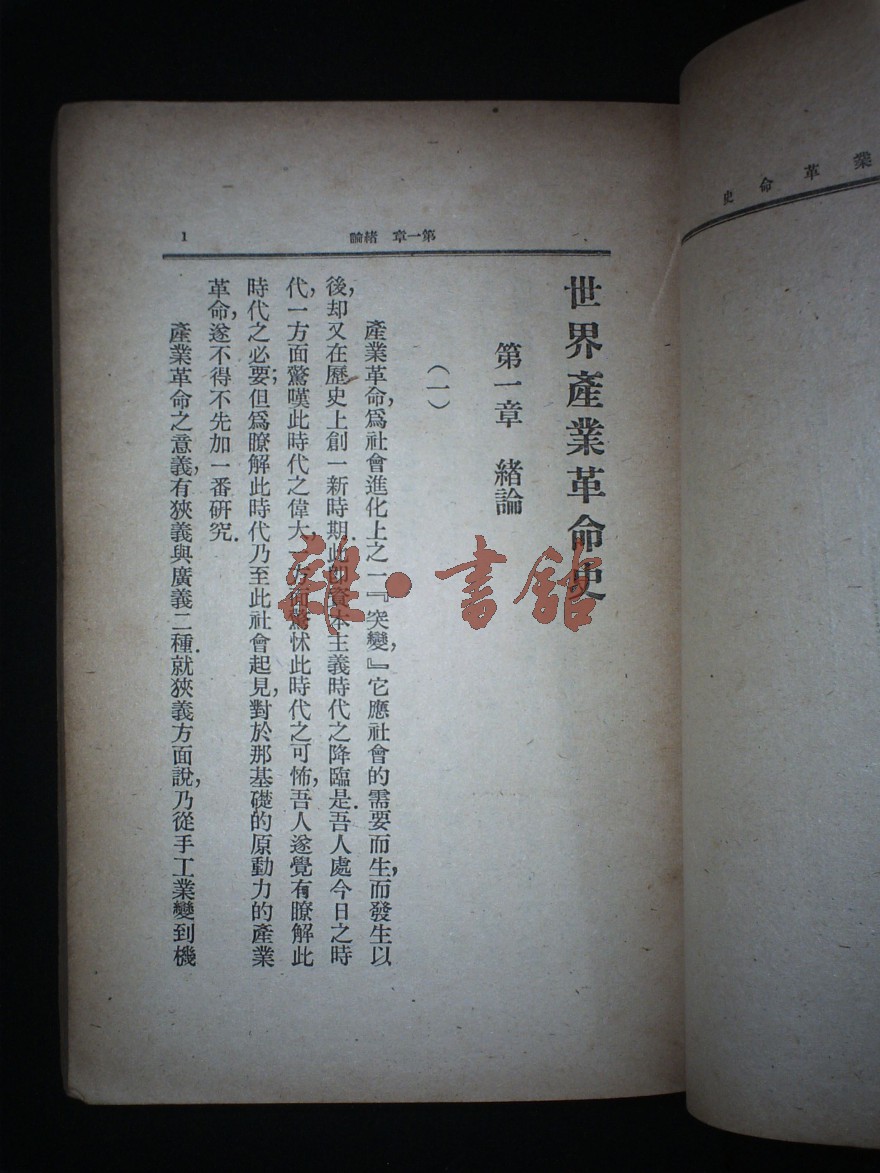 業革命史
第一章 緒論
1
世界產業革命史
第一章 緒論
（一）
產業革命，爲社會進化上之一『突變，』它應社會的需要而生，而發生以
後，却又在歷史上創一新時期．此即資本主義時代之降臨是．吾人處今日之時
代，一方面驚嘆此時代之偉大，一方面驚怵此時代之可怖，吾人遂覺有瞭解此
時代之必要；但爲瞭解此時代乃至此社會起見，對於那基礎的原動力的產業
革命，遂不得不先加一番研究．
產業革命之意義，有狹義與廣義二種．就狹義方面說，乃從手工業變到機
雜·書館